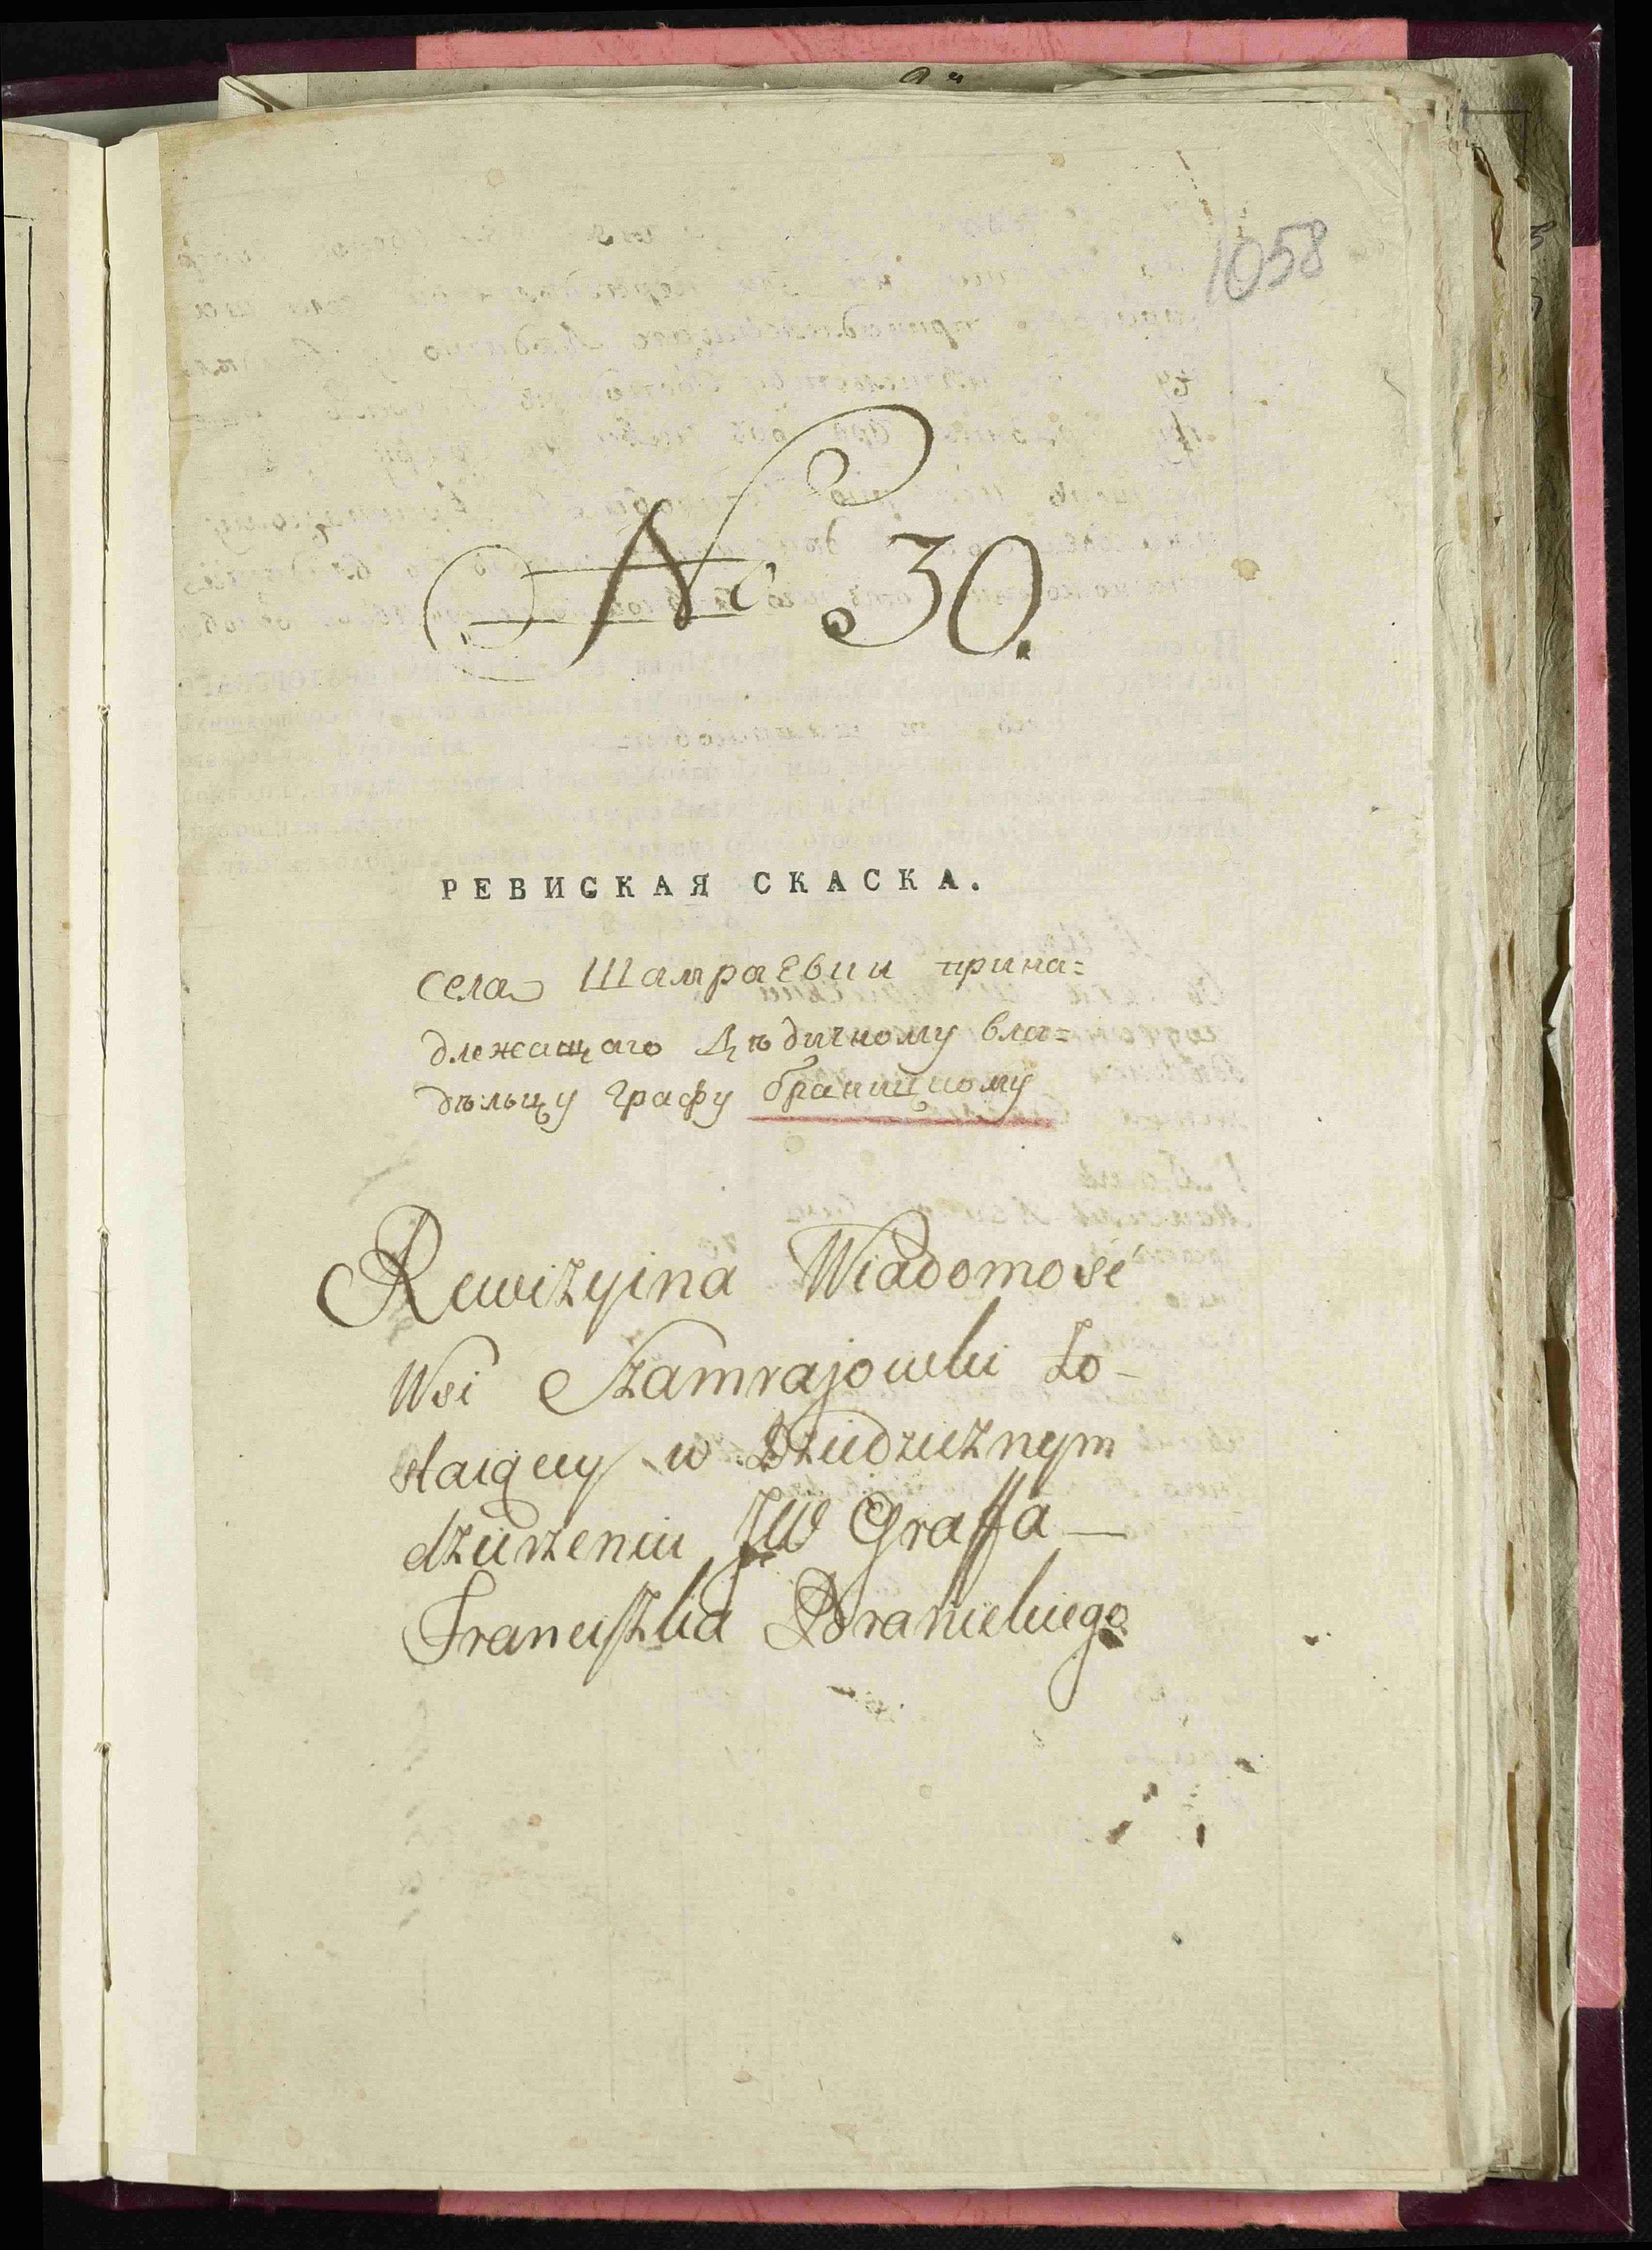 1058
No 30.
РЕВИСКАЯ СКАСКА.
села Шамраевки прина=
длежащаго Дѣдичному вла=
дѣльцу графу браницкому
Rewizyina Wiadomość
Wsi Szamrajowki Zo-
staiącey w Dziedzicznym
dzierzeniu JW Graffa —
Franciszka Branickiego.